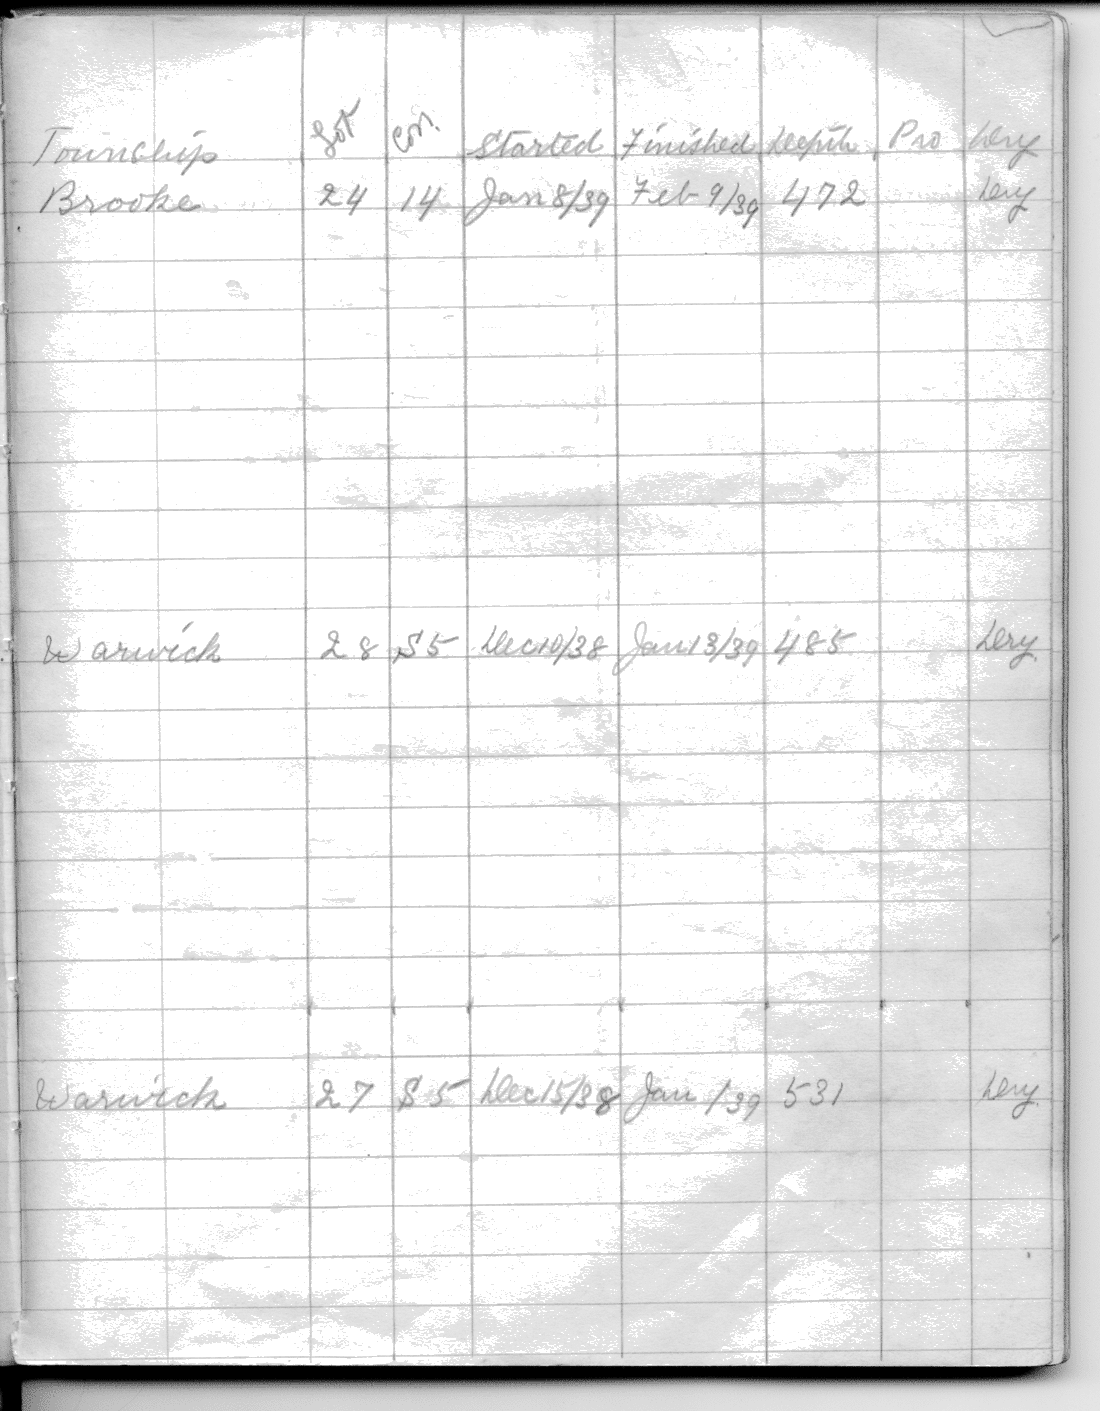 Township Lot Con. Started Finished Depth Pro Dry
Brooke 24 14 Jan 8/39 Feb 9/39 472 Dry
Warwick 28 S5 Dec 10/38 Jan 13/39 485 Dry
Warwick 27 S5 Dec 15/38 Jan 1/39 531 Dry